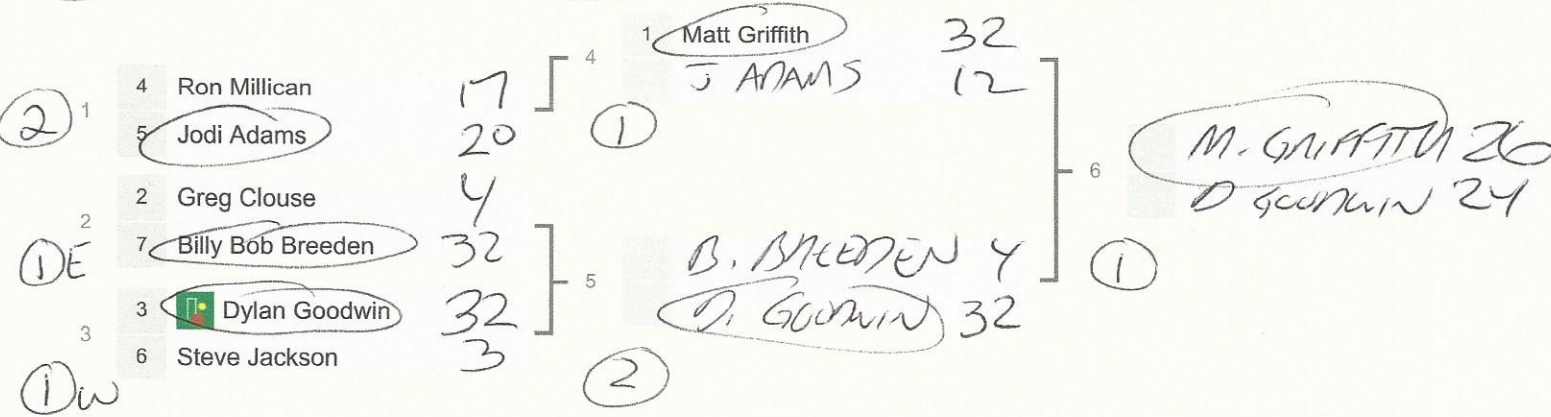 4 Ron Millican 17
1
2
5 Jodi Adams 20
2 Greg Clouse 4
2
1 E
7 Billy Bob Breeden 32
3 Dylan Goodwin 32
3
1 W
6 Steve Jackson 3
4
1 Matt Griffith 32
J ADAMS 12
1
5
B. BREEDEN 4
D. GOODWIN 32
2
6
M. GRIFFITH 26
D GOODWIN 24
1